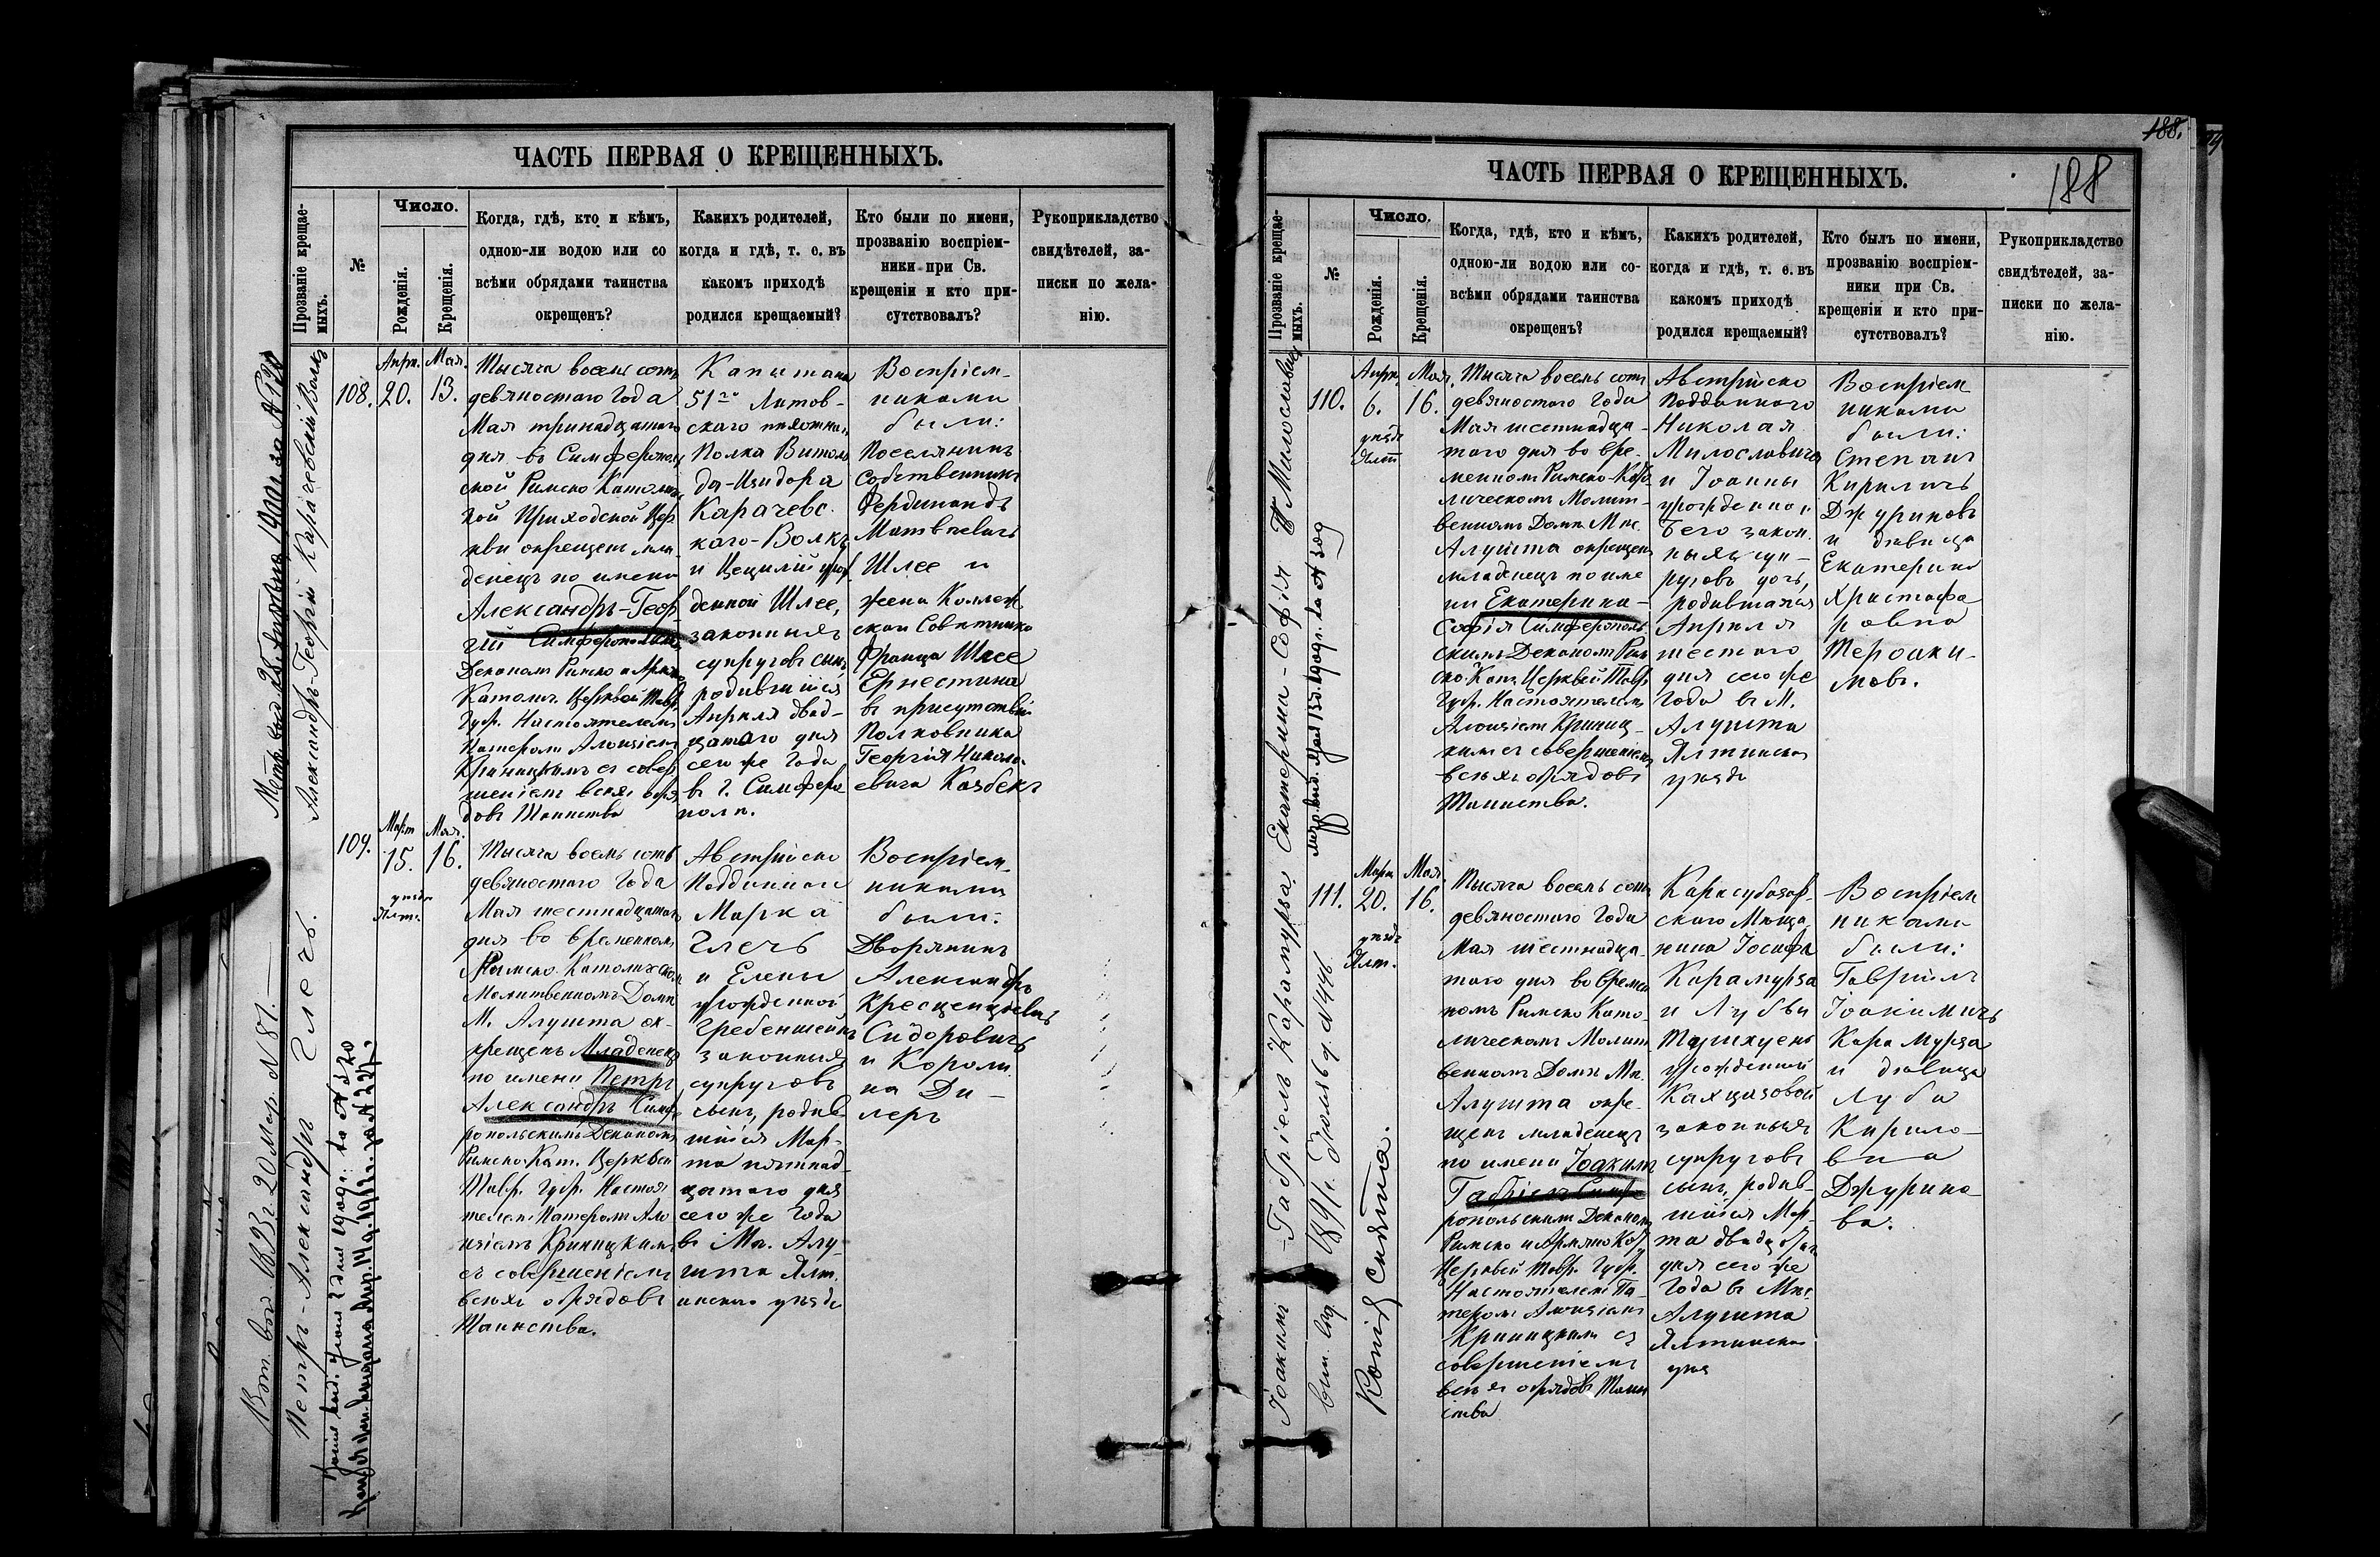 ЧАСТЬ ПЕРВАЯ О КРЕЩЕННЫХЪ.
Прозваніе крещае-
мыхъ.
№
Число.
Рожденія.
Крещенія.
Когда, гдѣ, кто и кѣмъ,
одною-ли водою или со
всѣми обрядами таинства
окрещенъ?
Какихъ родителей,
когда и гдѣ, т. е. въ
какомъ приходѣ
родился крещаемый?
Кто были по имени,
прозванію воспріем-
ники при Св.
крещеніи и кто при-
сутствовалъ?
Рукоприкладство
свидѣтелей, за-
писки по жела-
нію.
Александръ-Георгій Карачевскій Волкъ
108.
Апрл.
20.
Мая.
13.
Тысяча восемь сотъ
девяностаго Года
Мая тринадцатаго
дня въ Симферополь
ской Римско Католич
кой Приходской Цер
кви окрещенъ мла
денецъ по имени
Александръ-Геор
гій Симферопольск
Деканомъ Римско и Армяно
Католич. Церквей Тавр.
Губ. Настоятелемъ
Патеромъ Алоизіемъ
Криницкимъ съ совер
шеніемъ всѣхъ обря
довъ Таинства
Капитана
51го Литов-
скаго пѣхотнаго
Полка Витоль
да-Изидора
Карачевс.
каго-Волкъ
и Цециліи урож
денной Шлее,
законныхъ
супруговъ сынъ,
родившійся
Апрѣля двад-
цатаго дня
сего же Года
въ г. Симферо
полѣ.
Воспріем-
никами
были:
Поселянинъ
Собственникъ
Фердинандъ
Матвѣевичъ
Шлее и
жена Коллеж
скаго Совѣтника
Франца Шлее
Ернестина
въ присутствіи
Полковника
Георгія Никола
евича Казбекъ
Вып. выд. 1893 г. 20 Мар. N 81.
Петръ-Александръ Глечъ.
109.
Март
15.
уѣздъ
Ялт.
Мая.
16.
Тысяча восемь сотъ
девяностаго Года
Мая шестнадцатаго
дня во временномъ
Римско. Католическомъ
Молитвенномъ Домѣ
М. Алушта ок-
крещенъ Младенецъ
по имени Петръ
Александръ Симфе
ропольскимъ Деканомъ
Римско. Кат. Церквей
Тавр. Губ. Настоя
телемъ Патеромъ Ало
изіемъ Криницкимъ
съ совершеніемъ
всѣхъ обрядовъ
Таинства.
Австрійско
Подданнаго
Марка
Глечъ
и Елены
урожденной
Гребенщекъ
законныхъ
супруговъ
сынъ, родив-
шійся Мар-
та пятнад-
цатаго дня
сего же Года
въ Мѣ. Алу-
шта Ялт.
инскаго уѣзда
Воспріем-
никами
были:
Дворянинъ
Александръ
Кресценціевичъ
Сидоровичъ
и Кароли
на Ди-
леръ
188.
188
ЧАСТЬ ПЕРВАЯ О КРЕЩЕННЫХЪ.
Прозваніе крещае-
мыхъ.
№
Число.
Рожденія.
Крещенія.
Когда, гдѣ, кто и кѣмъ,
одною-ли водою или со-
всѣми обрядами таинства
окрещенъ?
Какихъ родителей,
когда и гдѣ, т. е. въ
какомъ приходѣ
родился крещаемый?
Кто былъ по имени,
прозванію воспріем-
ники при Св.
крещеніи и кто при-
сутствовалъ?
Рукоприкладство
свидѣтелей, за-
писки по жела-
нію.
Екатерина-Софія Милославичъ
110.
Апрл.
6.
уѣздъ
Ялт
Мая.
16.
Тысяча восемь сотъ
девяностаго Года
Мая шестнадца-
таго дня во вре-
менномъ Римско-Като
лическомъ Молит-
венномъ Домѣ Мѣс.
Алушта окрещенъ
младенецъ по име
ни Екатерина-
Софія Симферополь
скимъ Деканомъ Рим
ско Кат. Церквей Тавр.
Губ. Настоятелемъ
Алоизіемъ Криниц-
кимъ съ совершеніемъ
всѣхъ обрядовъ
Таинства.
Австрійско
Подданнаго
Николая
Милославича
и Іоанны
урожденной
Бего закон.
ныхъ суп-
руговъ дочь,
родившаяся
Апрѣля
шестаго
дня сего же
Года въ М.
Алушта
Ялтинска
уѣзда
Воспріем
никами
были:
Степанъ
Кириличъ
Джуриковъ
и дѣвица
Екатерина
Христофо
ровна
Тероаки-
мовъ.
Іоакимъ-Габріель Карамурза.
вып. выд. 1891 г. Іюля 6 д. N 446.
Копія снята.
111.
Марта
20.
уѣздъ
Ялт.
Мая.
16.
Тысяча восемь сотъ
девяностаго Года
Мая шестнадца-
таго дня во времен
номъ Римско Като-
лическомъ Молит
венномъ Домѣ Мѣ.
Алушта окре-
щенъ младенецъ
по имени Іоакимъ
Габріель Симфе
ропольскимъ Деканомъ
Римско и Армяно Кат
Церквей Тавр. Губ.
Настоятелемъ Па-
теромъ Алоизіемъ
Криницкимъ съ
совершеніемъ
всѣхъ обрядовъ Таин
ства
Карасубазар-
скаго Мѣща
нина Іосифа
Карамурза
и Любви
урожденной
законныхъ
супруговъ
сынъ, родив-
шійся Мар-
та двадцатаго
дня сего же
Года въ Мѣс.
Алушта
Ялтинска
уѣз
Воспріем
никами
были:
Гавріилъ
Іоакимичъ
Кара Мурза
и дѣвица
Люба
Кирило-
вна
Джурико-
ва.